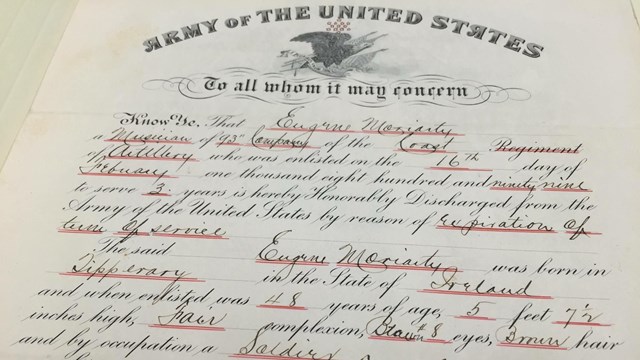 ARMY OF THE UNITED STATES
To all whom it may concern
Know Ye, That Eugene Moriarty
a Musician of 73" Company of the Coast Regiment
of Artillery who was enlisted on the 16TH day of
February one thousand eight hundred and ninety nine
to serve 3 years is hereby Honorably Discharged from the
Army of the United States by reason of Expiration of
term of service
The said Eugene Moriarty was born in
Tipperary in the State of Ireland
and when enlisted was 48 years of age, 5 feet 7½
inches high, Fair complexion, Brown #8 eyes, Brown hair
and by occupation a Soldier